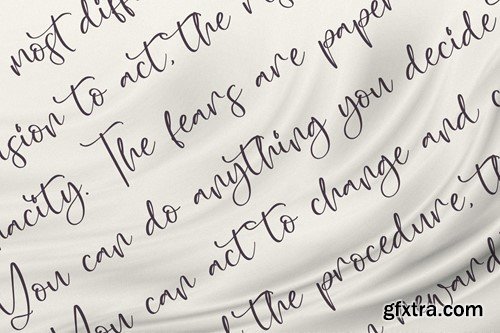 most diff
sion to act, the r
nacity. The fears are paper
You can do anything you decide
You can act to change and c
the procedure, t
reward
gfxtra.com